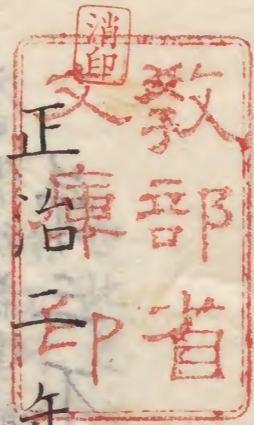 消印
教部省
文庫印
正治二年